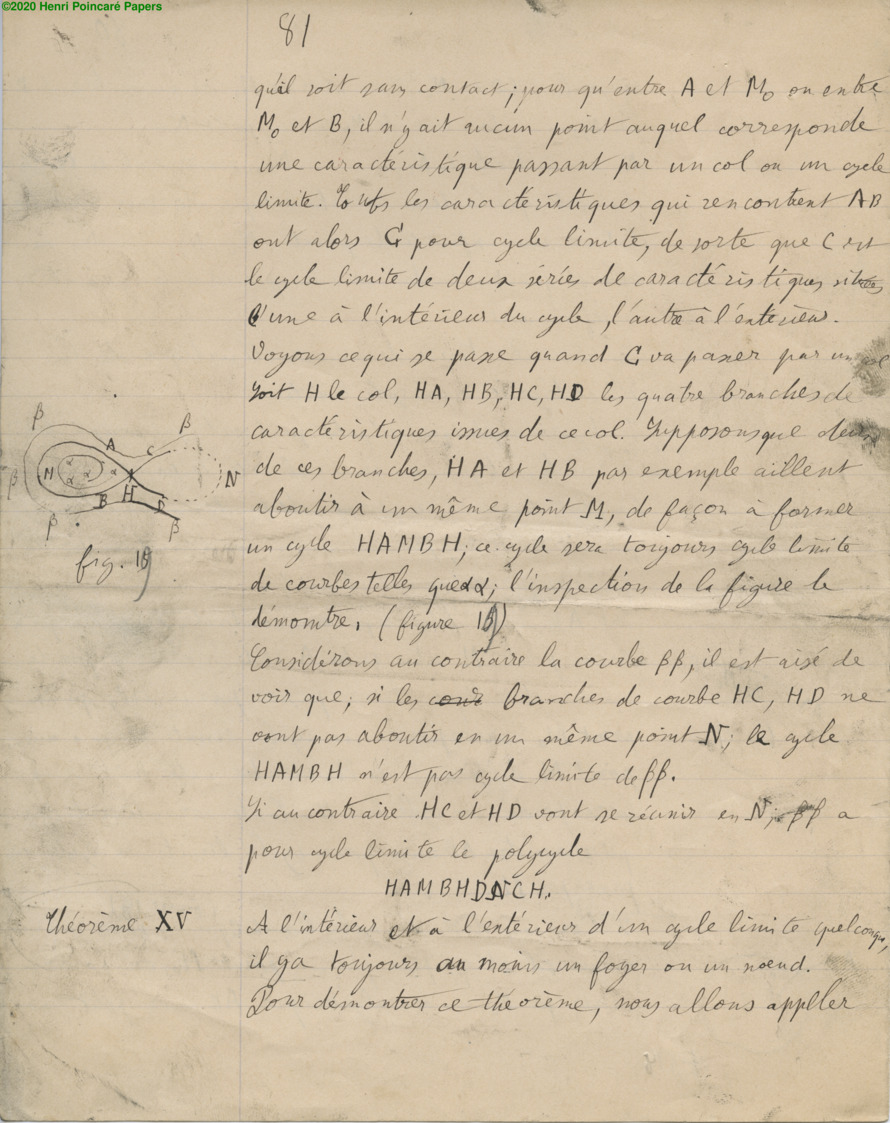 ©2020 Henri Poincaré Papers
81
qu'il soit sans contact; pour qu'entre A et M0 ou entre
M0 et B, il n'y ait aucun point auquel corresponde
une caractéristique passant par un col ou un cycle
limite. Toutes les caractéristiques qui rencontrent AB
ont alors C pour cycle limite, de sorte que C est
le cycle limite de deux séries de caractéristiques situées
l'une à l'intérieur du cycle, l'autre à l'extérieur.
Voyons ce qui se passe quand C va passer par un col
Soit H le col, HA, HB, HC, HD les quatre branches de
caractéristiques issues de ce col. Supposons que deux
de ces branches, HA et HB par exemple aillent
aboutir à un même point M, de façon à former
un cycle HAMBH; ce cycle sera toujours cycle limite
de courbes telles que αα; l'inspection de la figure le
démontre. (figure 19)
Considérons au contraire la courbe ββ, il est aisé de
voir que; si les cour branches de courbe HC, HD ne
vont pas aboutir en un même point N; le cycle
HAMBH n'est pas cycle limite de ββ.
Si au contraire HC et HD vont se réunir en N; ββ a
pour cycle limite le polycycle
HAMBHDNCH.
Théorème XV
A l'intérieur et à l'extérieur d'un cycle limite quelconque,
il y a toujours au moins un foyer ou un nœud.
Pour démontrer ce théorème, nous allons appller
β
A
C
β
M
α
α
α
α
N
β
B
H
D
β
β
fig. 19